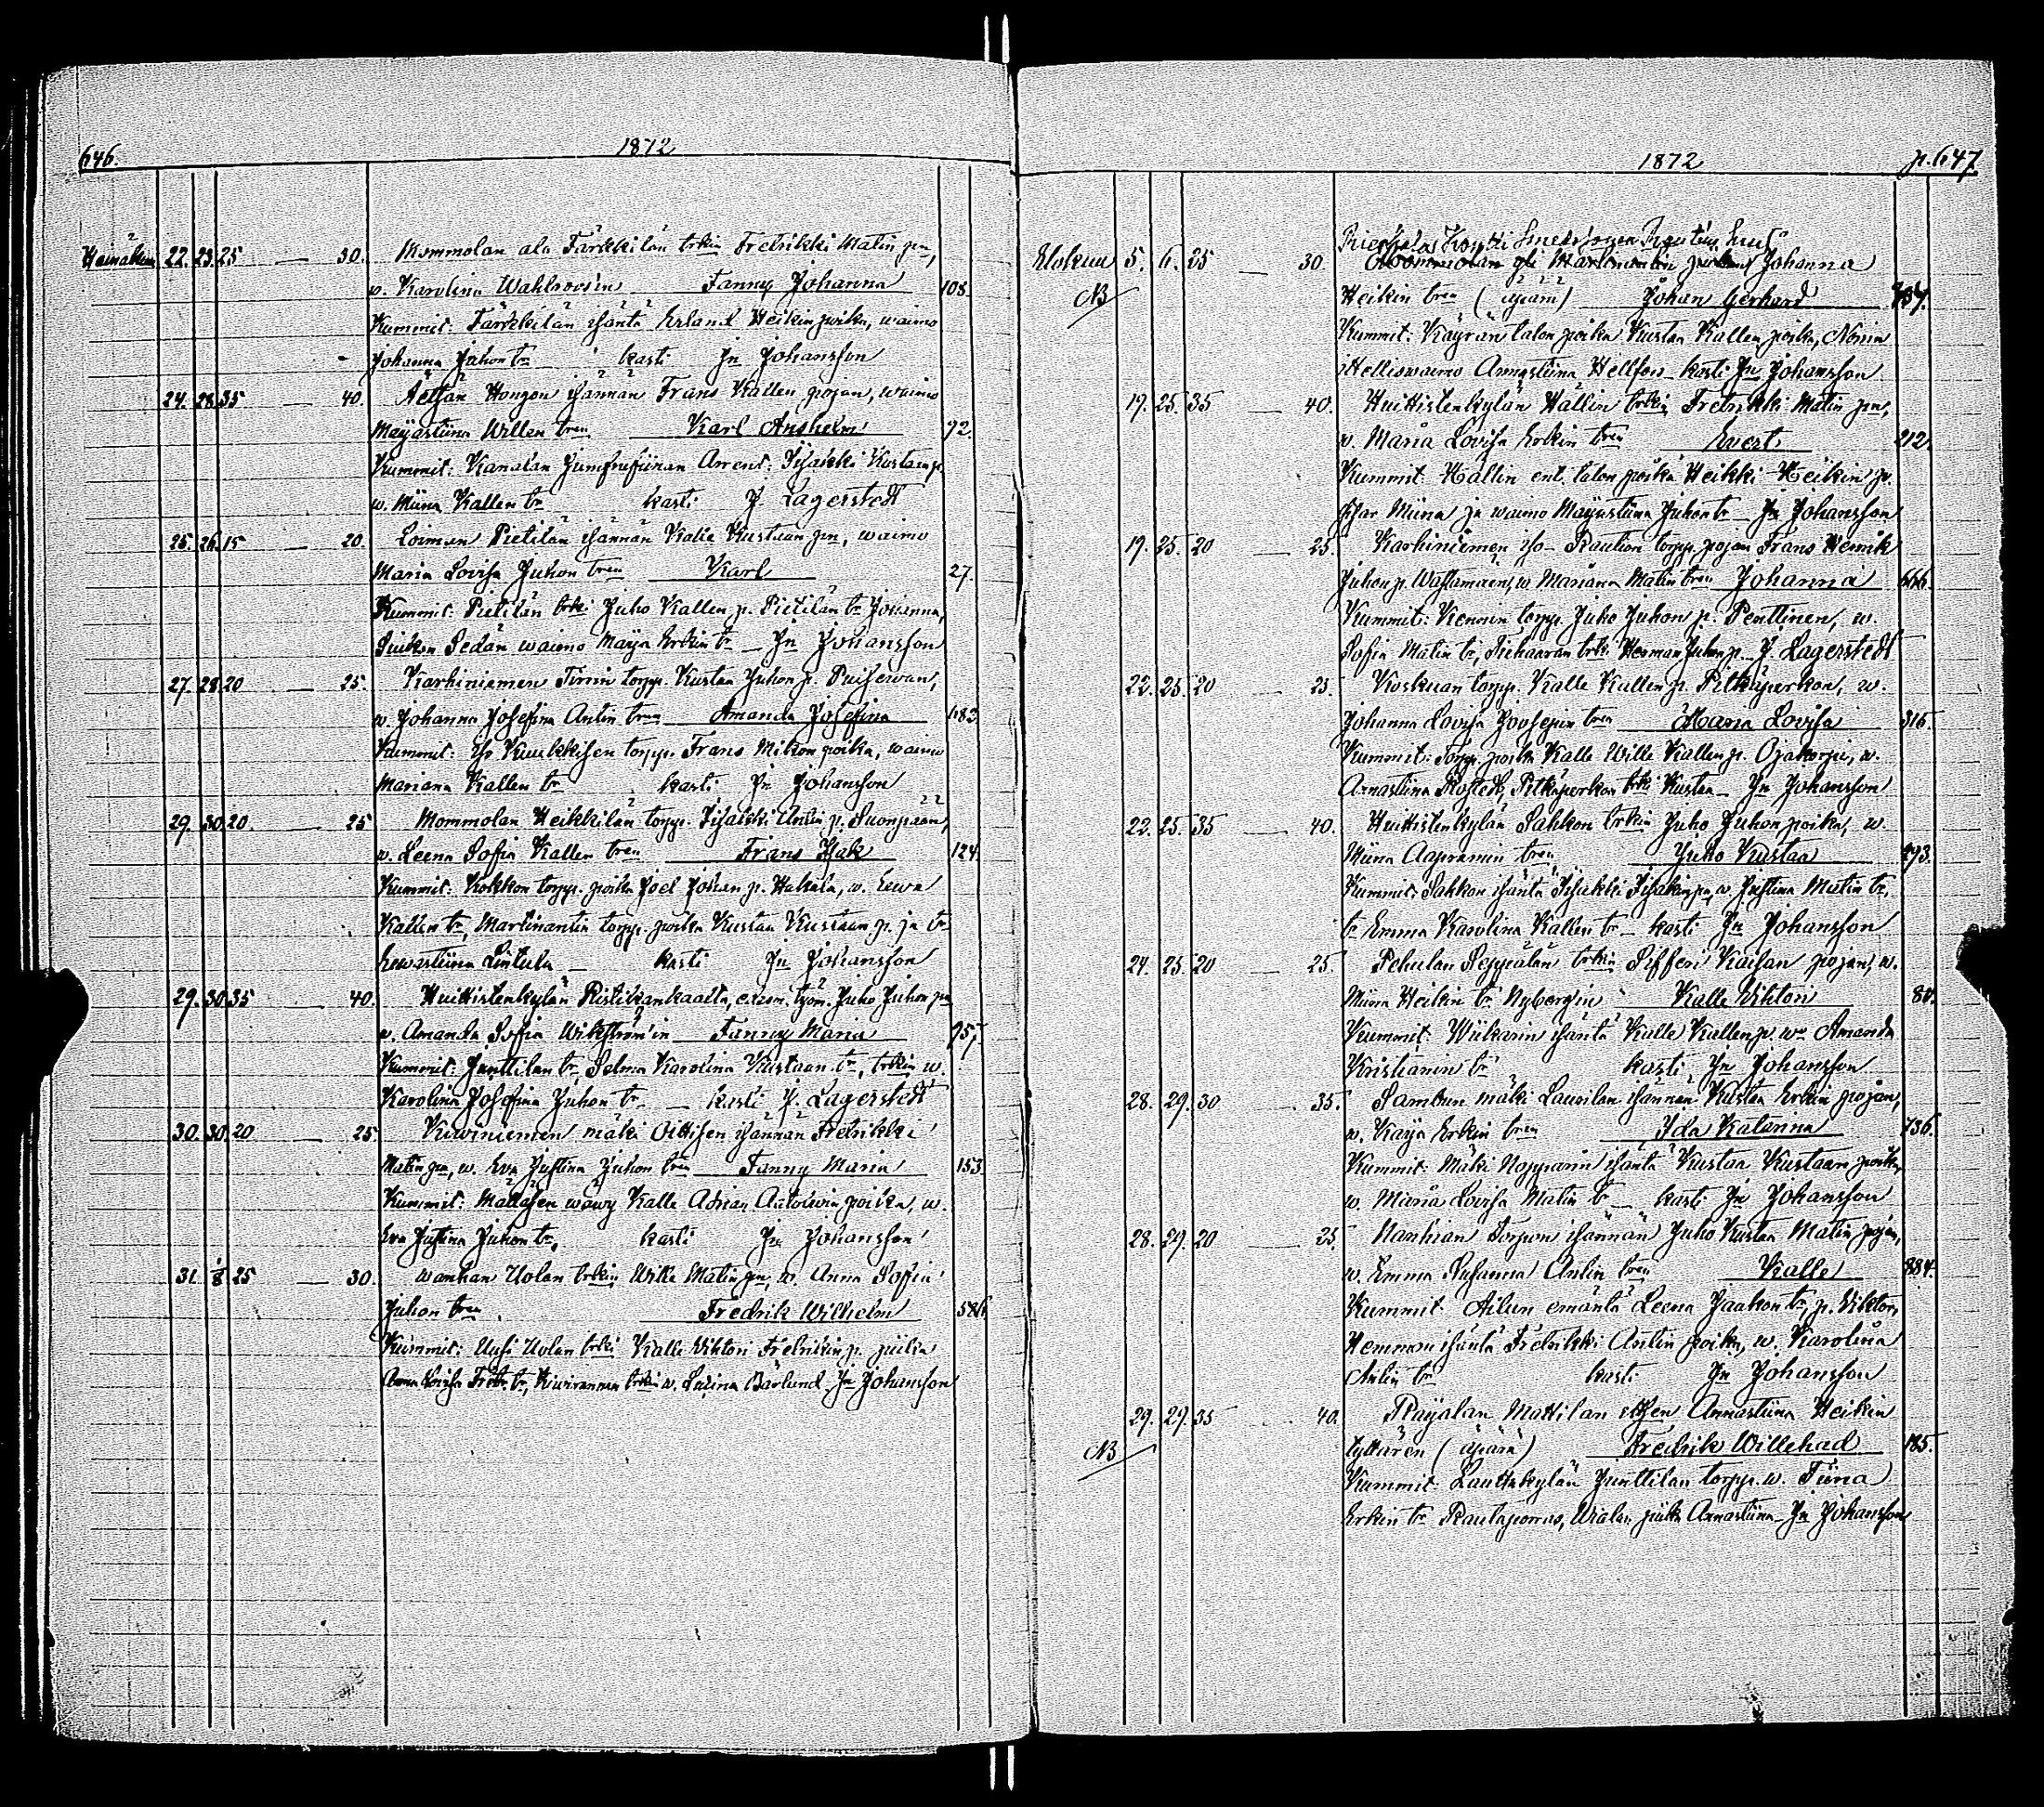 646.
1872
Heinäkuu 22. 23. 25 — 30. Mommolan ala Färkkilän trkin Fredrikki Matin pn,
w. Karolina Wahlroosin Fanny Johanna 108.
Kummit: Färkkilän isäntä Erland Heikin poika, waimo
Johanna Juhon tr kasti Jn Johansson
24. 28. 35 — 40. Aetsän Hongon isännän Frans Kallen pojan, waimo
Maijastiina Willen tren Karl Anshelm 72.
Kummit: Kanalan Arrent: Isakki Kustaan p,
w. Miina Kallen tr kasti J. Lagerstedt
25. 26. 15 — 20. Loiman Pietilän isännän Kalle Kustaan pn, waimo
Maria Lovisa Juhon tren Karl 27.
Kummit: Pietilän trki Juho Kallen p. Pietilän tr Johanna,
Suikon Sedän waimo Maija Erkin tr — Jn Johansson
27. 28. 20 — 25. Karhiniemen torpp. Kustaa Juhon p.
w. Johanna Josefina Antin tren Amanda Josefina 183.
Kummit: iso torpp. Frans Mikon poika, waimo
Mariana Kallen tr kasti Jn Johansson
29. 30. 20 — 25 Mommolan Heikkilän torpp. Isakki Antin p. Suonpään,
w. Leena Sofia Kallen tren Frans Isak 124.
Kummit: Kokkon torpp. poika Joel Johan p. Hakala, w. Eewa
Kallen tr, Martinantin torpp. poika Kustaa Kustaan p. ja tr
Eewastiina Lintula — kasti Jn Johansson
29. 30. 35 — 40. Huittistenkylän Ristikankaalta, työm. Juho Juhon pn
w. Amanda Sofia Wikström'in Fanny Maria 757
Kummit: Junttilan tr Selma Karolina Kustaan tr, trkin w.
Karolina Josefina Juhon tr — kasti J. Lagerstedt
30. 30. 20 — 25 Kiwiniemen mäki Oittisen isännän Fredrikki
Matin pn, w. Eva Justina Juhon tren Fanny Maria 153
Kummit: wäwy Kalle Adrian poika, w.
Eva Justina Juhon tr, kasti Jn Johansson
31. 1/8 25 — 30. Wanhan Uolan trkin Wille Matin pn, w. Anna Sofia
Juhon tren Fredrik Wilhelm 586
Kummit: Uusi Uolan trki Kalle Wihtori Fredrikin p. piika
Anna Lovisa tr, Kiwirannan trkin w. Barlund Jn Johansson
1872 p. 647
Elokuu 5. 6. 25 — 30. Johanna
NB Heikin tren (äpärä) Johan Gerhard 737.
Kummit: Käyrän talon poika Kustaa Kallen poika, Nonin
itsellis waimo Annastiina Hellfors — kasti Jn Johansson
19. 25. 35 — 40. Huittistenkylän Hällin trkin Fredrikki Matin pn,
w. Maria Lovisa Erkin tren Evert 212.
Kummit: Hällin ent. talon poika Heikki Heikin p.
Miina ja waimo Maijastiina Juhon tr — Jn Johansson
19. 25. 20 — 25. Karhiniemen iso-Raution torpp. pojan Frans Henrik
Juhon p. Wastamäen, w. Mariana Matin tren Johanna 666.
Kummit: Kennin torpp. Juho Juhon p. Penttinen, w.
Sofia Matin tr, trki Herman Juhon p. J. Lagerstedt
22. 25. 20 — 25. Koskuan torpp. Kalle Kallen p. Pitkäperkon, w.
Johanna Lovisa Joosepin tren Maria Lovisa 316.
Kummit: Torpp. poika Kalle Wille Kallen p. Ojakorpi, w.
Annastiina Rostedt, Pitkäperkon trki Kustaa — Jn Johansson
22. 25. 35 — 40. Huittistenkylän Sahkon trkin Juho Juhon poika, w.
Miina Aapramin tren Juho Kustaa 293.
Kummit: Sahkon isäntä Isakki Isakin pn, w. Justina Matin tr,
tr Emma Karolina Kallen tr — kasti Jn Johansson
24. 25. 20 — 25. Pehulan Seppälän trkin Siffen Kaisan pojan, w.
Miina Heikin tr Nybergin Kalle Wihtori 80.
Kummit: Wiikarin isäntä Kalle Kallen p. wo Amanda
Kristianin tr kasti Jn Johansson
28. 29. 30 — 35. Sammun mäki Laurilan isännän Kustaa Erkin pojan,
w. Kaija Erkin tren Ida Katarina 736.
Kummit: Mäki Nopparin isäntä Kustaa Kustaan poika,
w. Maria Lovisa Matin tr — kasti Jn Johansson
28. 29. 20 — 25. Nanhian Torpon isännän Juho Kustaa Matin pojan,
w. Emma Susanna Antin tren Kalle 884.
Kummit: Ailun emäntä Leena Jaakon tr, p. Viktor,
Hemmon isäntä Fredrikki Antin poika, w. Karolina
Antin tr kasti Jn Johansson
29. 29. 35 — 40. Raijalan Mattilan itsen Annastiina Heikin
NB tyttären (äpärä) Fredrik Willehad 185.
Kummit: Lauttakylän Junttilan torpp. w. Tiina
Erkin tr Rautaporras, piika Annastiina — Jn Johansson